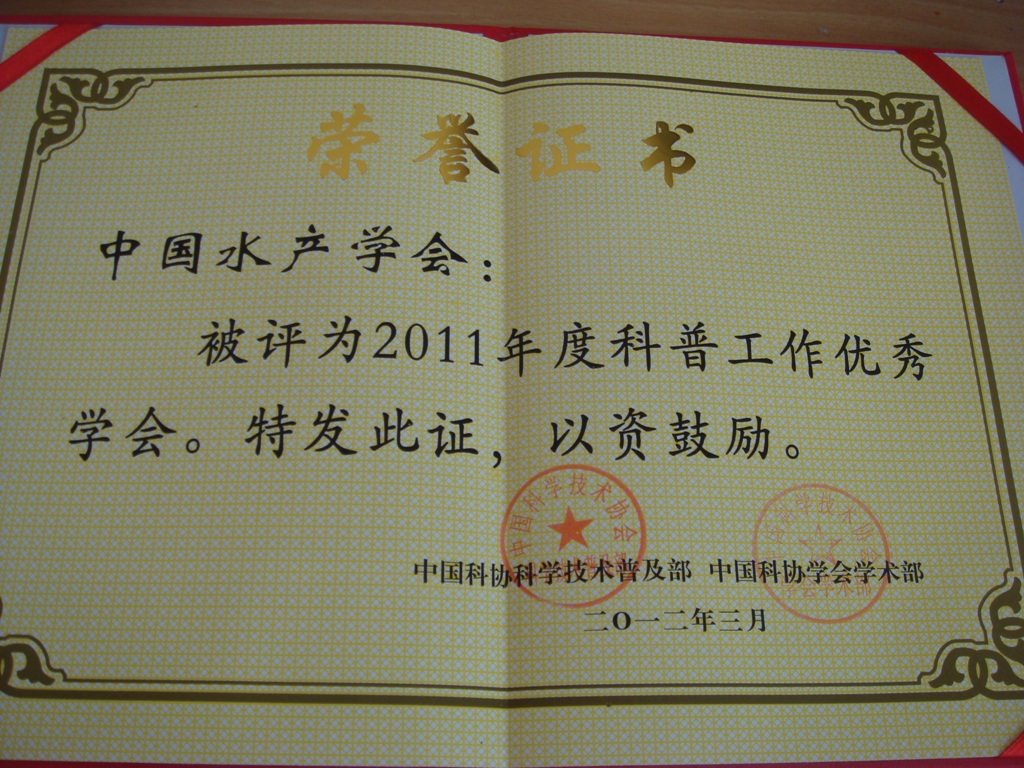 荣誉证书
中国水产学会：
被评为2011年度科普工作优秀
学会。特发此证，以资鼓励。
中国科学技术协会
中国科协科学技术普及部 中国科协学会学术部
学会学术部
二O一二年三月